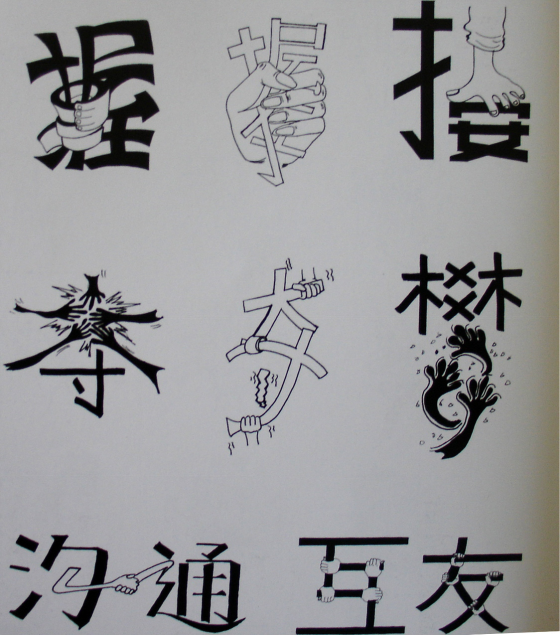 握 按
夺 夺 攀
沟通 互友